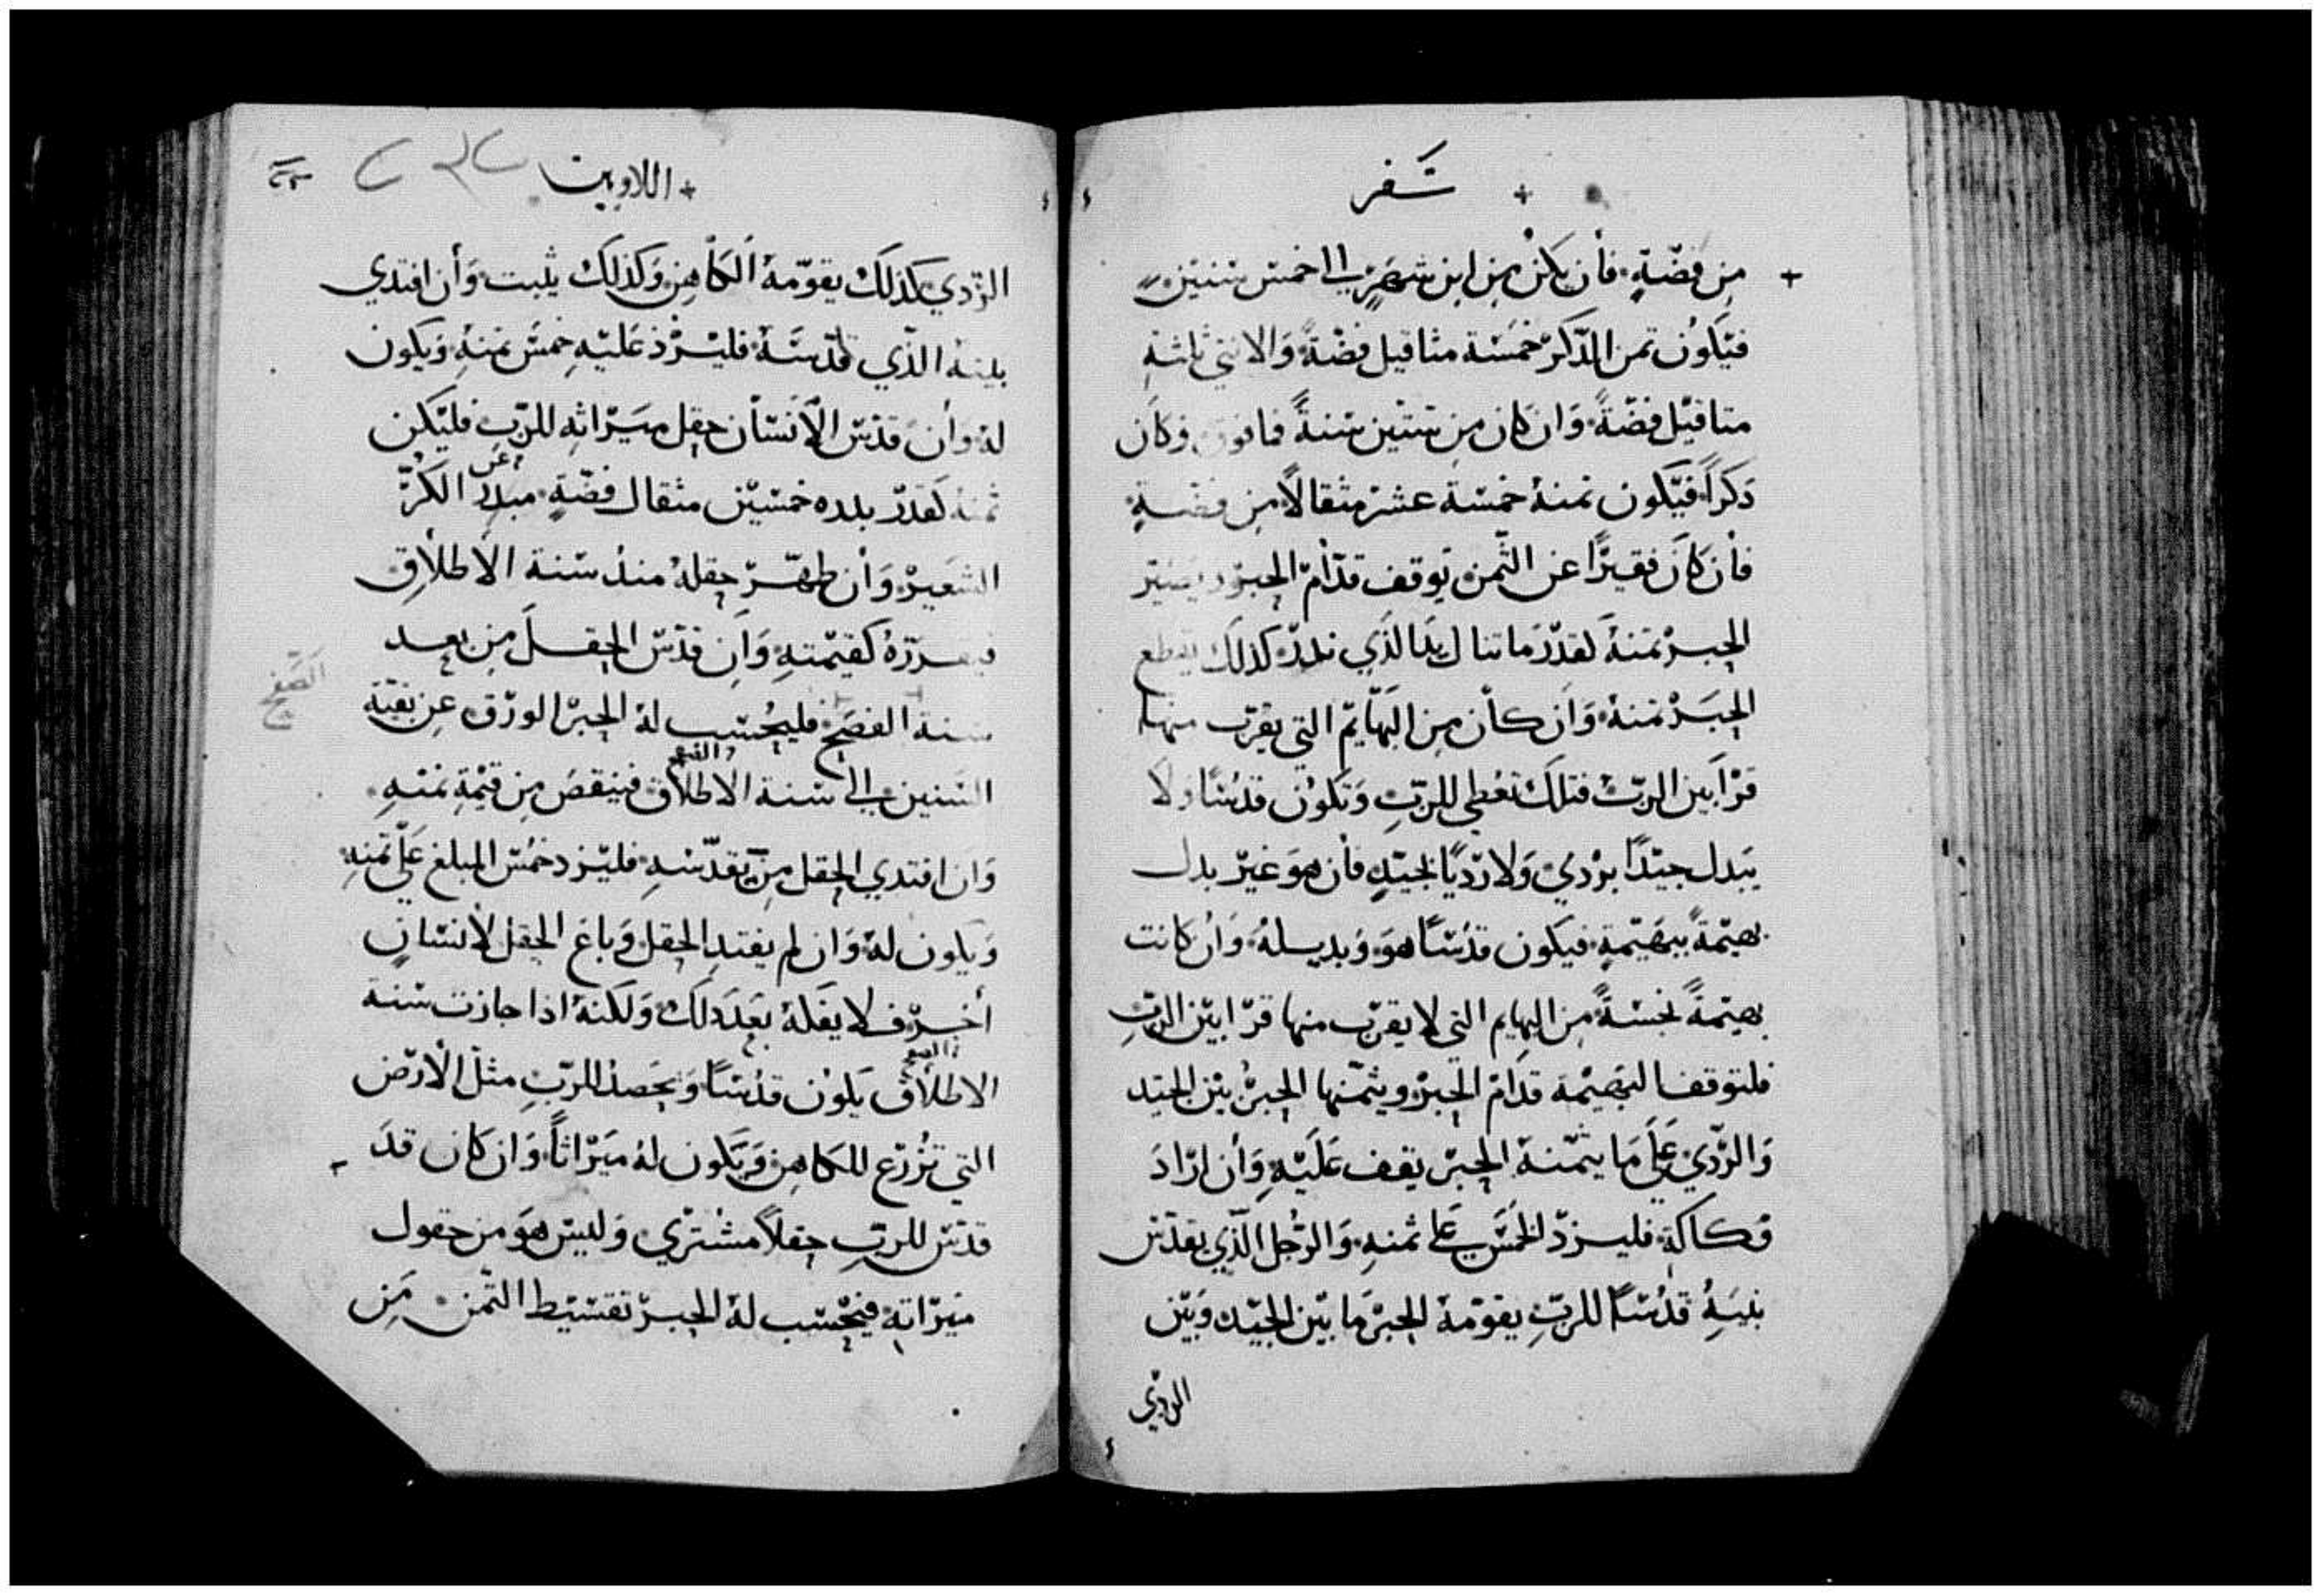 سفر
من فضّةٍ فأن يكن من ابن شهرٍ الى خمس سنين
فيكون ثمن الذّكر خمسة مثاقيل فضّةً والانثي ثلثة
مثاقيل فضّةً وان كان من ستين سنةً فما فوق وكان
ذكراً فيكون ثمنهُ خمسة عشر مثقالاً من فضّةٍ
فأن كان فقيرًا عن الثّمن يوقف قدّام الحبر ويصير
الحبر ثمنهُ لقدر ما تنال يد الذي نذر كذلك يقطع
الحبر ثمنهُ وان كان من البهايم التي يقرّب منها
قرابين الربّ فتلك تعطي للربّ وتكون قدسًا ولا
يبدل جيّدًا بردي ولا رديًا بجيّدٍ فأن هو غيّر بدل
بهيمةً ببهيمةٍ فيكون قدسًا هو وبديله وان كانت
بهيمةً نجسةً من البهايم التي لا يقرب منها قرابين الربّ
فلتوقف البهيمة قدام الحبر ويثمّنها الحبر بين الجيّد
والرّدي على ما يثمّنهُ الحبر يقف عليهِ وأن اراد
فكاكهُ فليزد الخمس على ثمنهِ والرّجل الّذي يقدّس
بيتهُ قدسًا للربّ يقوّمهُ الحبر ما بين الجيّد وبين
الردي
اللاويين
الرّدي كذلك يقوّمهُ الكاهن وكذلك يثبت وأن افتدي
بيتهُ الذّي قدّسهُ فليزد عليهِ خمس ثمنهِ ويكون
لهُ وأن قدّس الأنسان حقل ميراثه للربّ فليكن
ثمنهُ لقدر بدره خمسين مثقال فضّةٍ مبدر الكرّ
الشعير وأن طهّر حقلهُ منذ سنة الاطلاق
فيقرّرهُ كقيمتهِ وأن قدّس الحقل من بعد
سنة الفصح فليحسب لهُ الحبر الورق عن بقيّة
الصّفح
السّنين الى سنة الاطلاق فينقص من قيمة ثمنهِ
وان افتدي الحقل من يقدّسهِ فليزد خمس المبلغ على ثمنهِ
ويكون لهُ وان لم يفتدِ الحقل وباع الحقل لأنسانٍ
أخر فلا يفكّهُ بعد ذلك ولكنهُ اذا جازت سنة
الاطلاق يكون قدسًا ويحصد للربّ مثل الأرض
التي تزرع للكاهن ويكون لهُ ميراثاً وان كان قد
قدّس للربّ حقلاً مشتري وليس هو من حقول
ميراثهِ فيحسب لهُ الحبر تقسيط الثّمن من